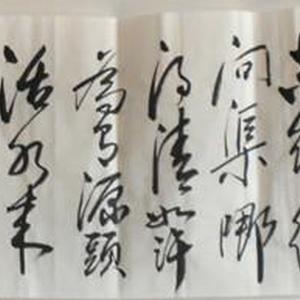 问渠哪
得清如许
為有源頭
活水来